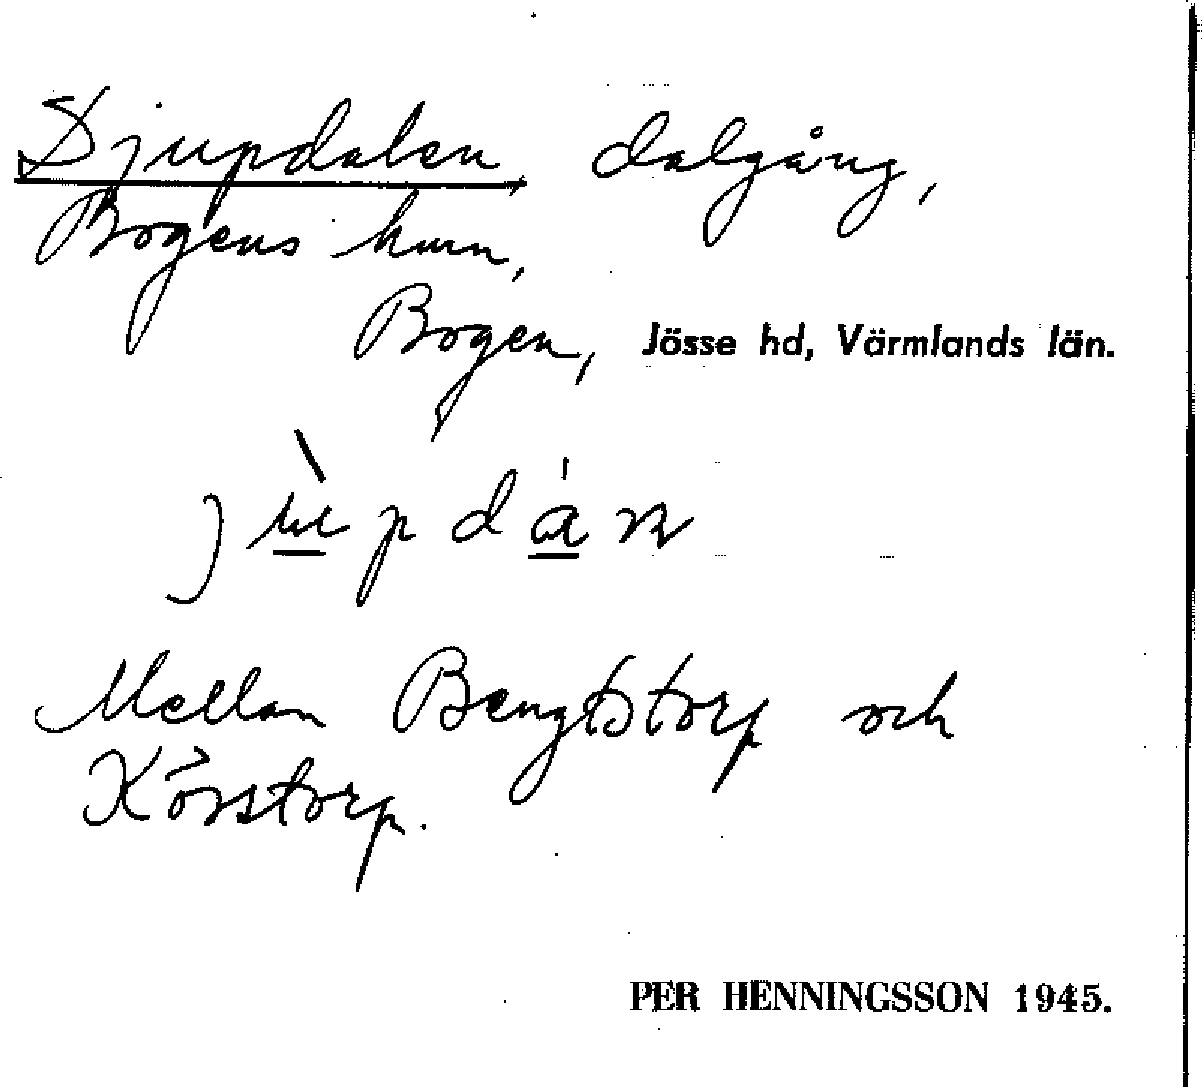 Djupdalen, dalgång,
Bogens hmn,
Bogen, Jösse hd, Värmlands län.
jùpdán
Mellan Bengtstorp och
Körstorp.
PER HENNINGSSON 1945.